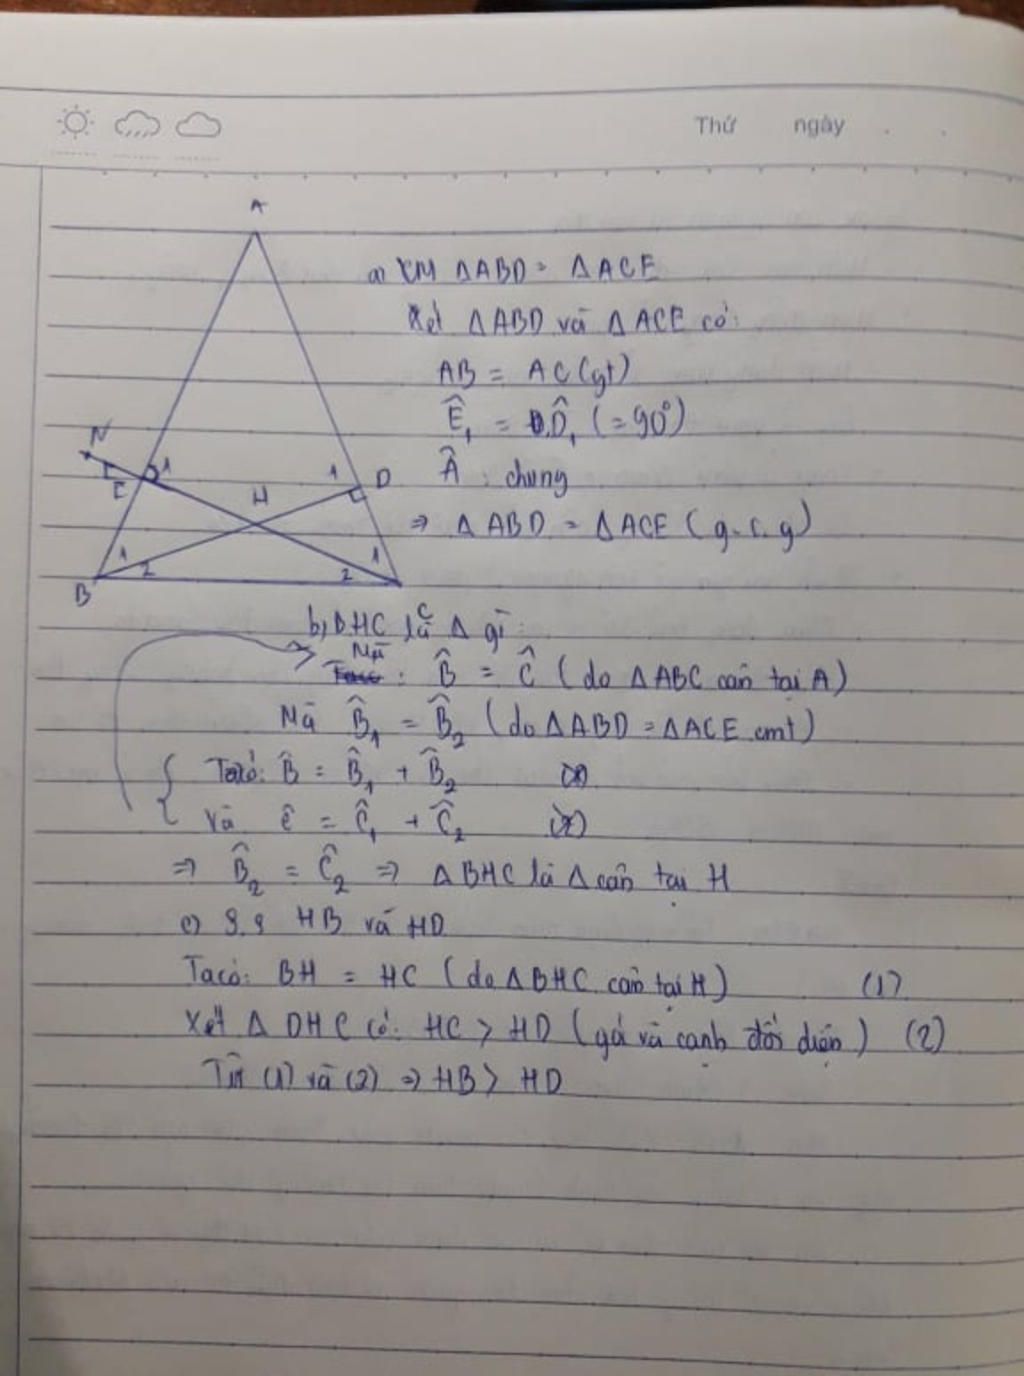 Thứ ngày
A
a) CM ΔABD = ΔACE
Xét ΔABD và ΔACE có:
AB = AC (gt)
Ê₁ = D̂₁ (= 90°)
Â : chung
⇒ ΔABD = ΔACE (g.c.g)
N
E 1
1 D
H
1 2
2 1
B
C
b) BHC là Δ gì:
Mà : B̂ = Ĉ (do ΔABC cân tại A)
Mà B̂₁ = B̂₂ (do ΔABD = ΔACE cmt)
Ta có: B̂ = B̂₁ + B̂₂
Và Ĉ = Ĉ₁ + Ĉ₂
⇒ B̂₂ = Ĉ₂ ⇒ ΔBHC là Δ cân tại H
c) S.S HB và HD
Ta có: BH = HC (do ΔBHC cân tại H) (1)
Xét ΔDHC có: HC > HD (gó và cạnh đối diện) (2)
Từ (1) và (2) ⇒ HB > HD